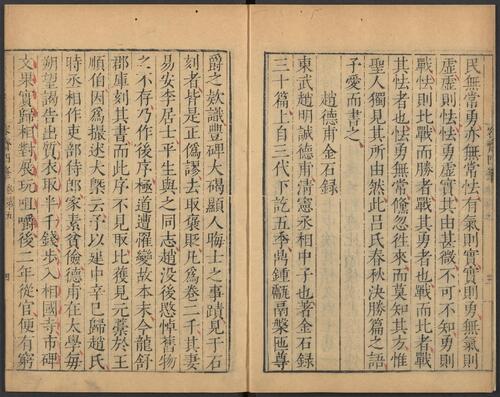 民無常勇亦無常怯有氣則實實則勇無氣則
虛虛則怯怯勇虛實其由甚微不可不知勇則
戰怯則北戰而勝者戰其勇者也戰而北者戰
其怯者也怯勇無常儵忽往來而莫知其方惟
聖人獨見其所由然此呂氏春秋決勝篇之語
予愛而書之
趙德甫金石錄
東武趙明誠德甫清憲丞相中子也著金石錄
三十篇上自三代下訖五季鼎鍾甗鬲槃匜尊
爵之款識豐碑大碣顯人晦士之事蹟見于石
刻者皆是正偽謬去取褒貶凡為卷二千其妻
易安李居士平生與之同志趙沒後愍悼舊物
之不存乃作後序極道遭罹變故本末今龍舒
郡庫刻其書而此序不見取比獲見元藁於王
順伯因為撮述大槩云予以建中辛巳歸趙氏
時丞相作吏部侍郎家素貧儉德甫在太學每
朔望謁告出質衣取半千錢步入相國寺市碑
文果實歸相對展玩咀嚼後二年從官便有窮
四